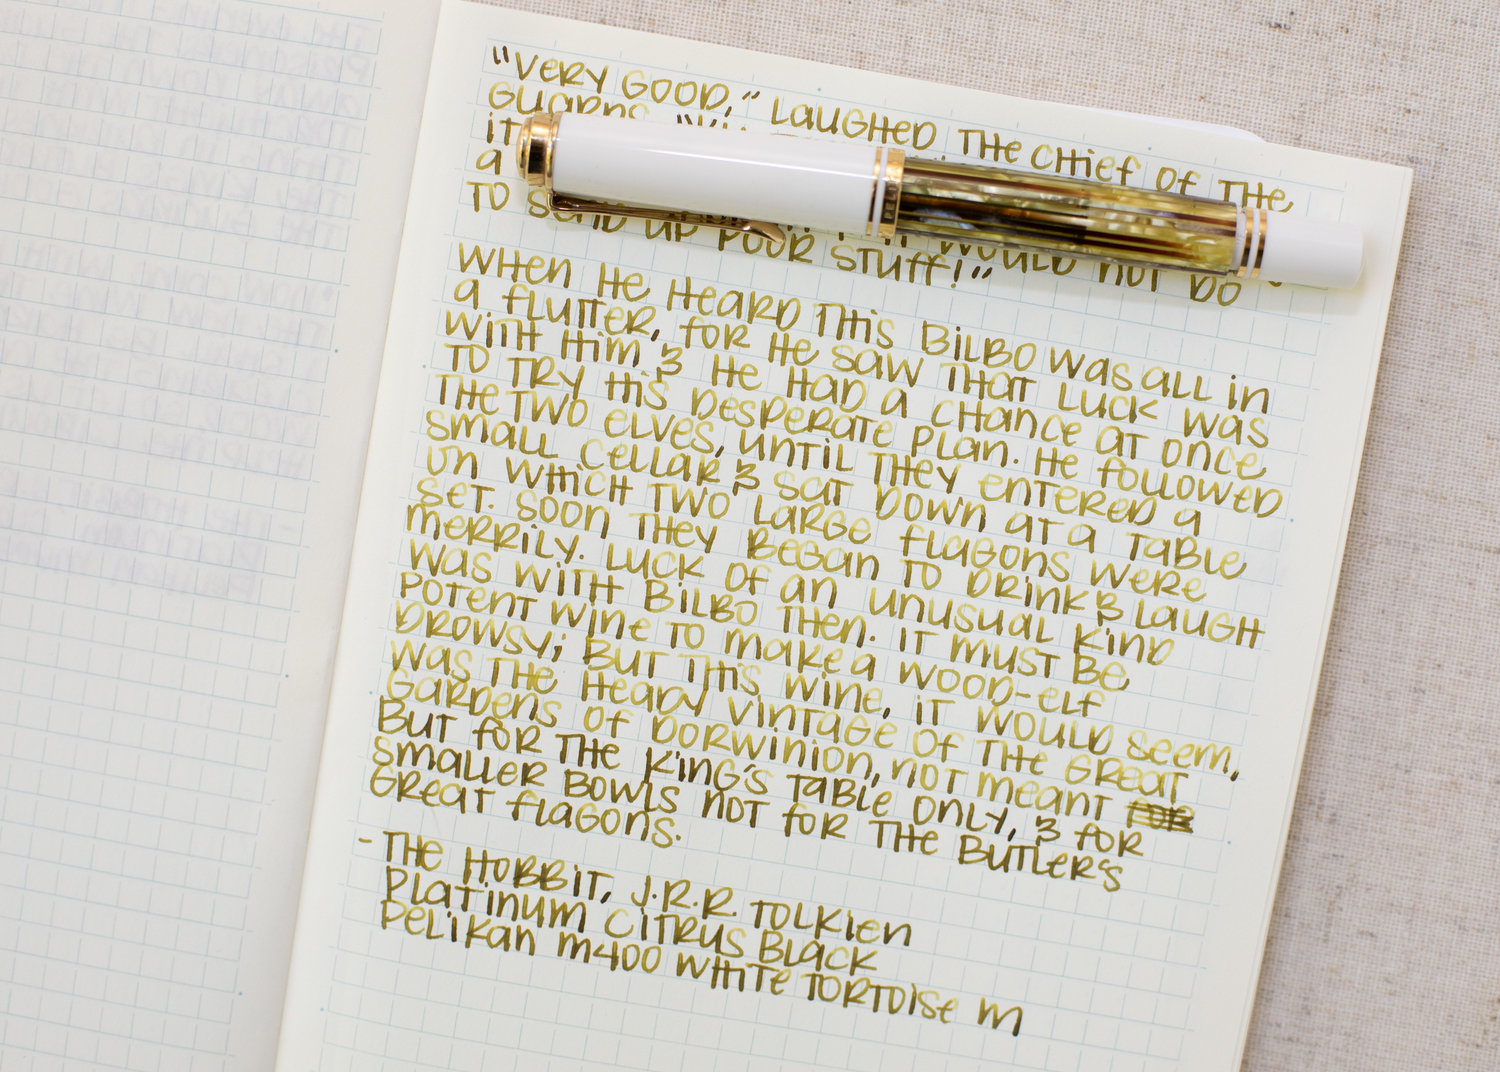 "Very good," laughed the chief of the
guards.
it
a
to send up poor stuff!"
would not do
When he heard this Bilbo was all in
a flutter, for he saw that luck was
with him & he had a chance at once
to try his desperate plan. He followed
the two elves, until they entered a
small cellar & sat down at a table
on which two large flagons were
set. Soon they began to drink & laugh
merrily. Luck of an unusual kind
was with Bilbo then. It must be
potent wine to make a wood-elf
drowsy; but this wine, it would seem,
was the heady vintage of the great
gardens of Dorwinion, not meant for
but for the king's table only, & for
smaller bowls not for the butler's
great flagons.
- The Hobbit, J.R.R. Tolkien
Platinum Citrus Black
Pelikan M400 White Tortoise M